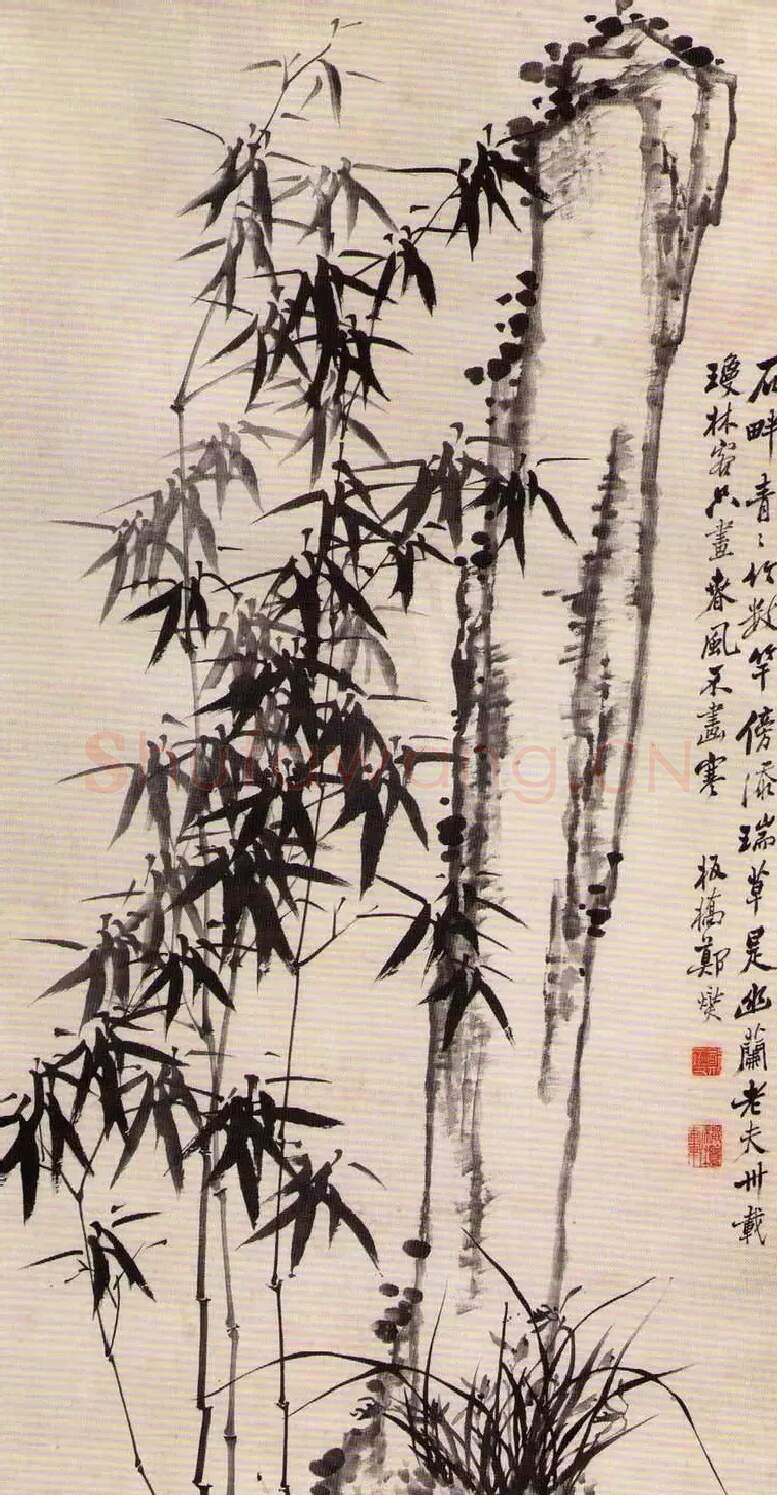 石畔青〻竹数竿傍添瑞草是幽蘭老夫卅載
瓊林客只畫春風不畫寒
板橋鄭燮
shufawang.CN